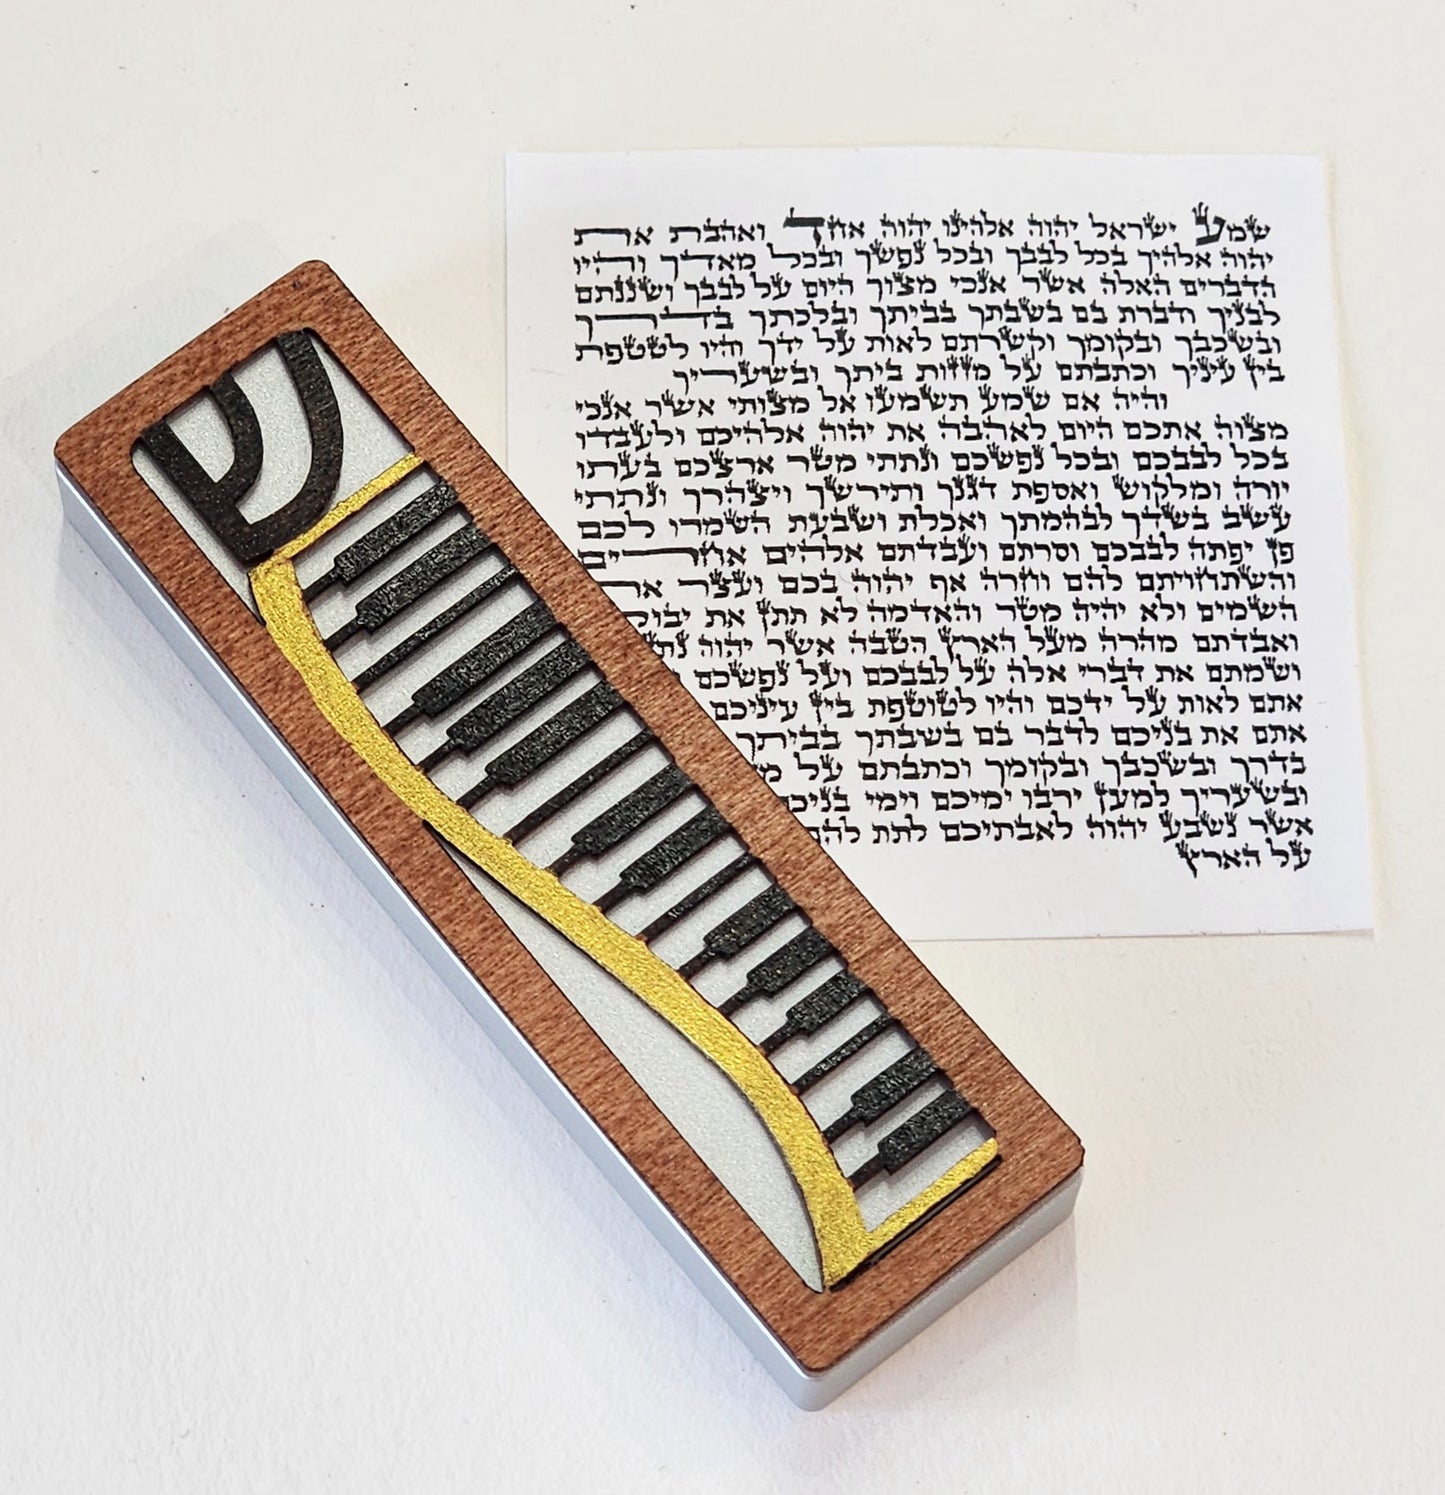 ש
שמע ישראל יהוה אלהינו יהוה אחד ואהבת את
יהוה אלהיך בכל לבבך ובכל נפשך ובכל מאדך והיו
הדברים האלה אשר אנכי מצוך היום על לבבך ושננתם
לבניך ודברת בם בשבתך בביתך ובלכתך בדרך
ובשכבך ובקומך וקשרתם לאות על ידך והיו לטטפת
בין עיניך וכתבתם על מזזות ביתך ובשעריך
והיה אם שמע תשמעו אל מצותי אשר אנכי
מצוה אתכם היום לאהבה את יהוה אלהיכם ולעבדו
בכל לבבכם ובכל נפשכם ונתתי מטר ארצכם בעתו
יורה ומלקוש ואספת דגנך ותירשך ויצהרך ונתתי
עשב בשדך לבהמתך ואכלת ושבעת השמרו לכם
פן יפתה לבבכם וסרתם ועבדתם אלהים אחרים
והשתחויתם להם וחרה אף יהוה בכם ועצר את
השמים ולא יהיה מטר והאדמה לא תתן את
ואבדתם מהרה מעל הארץ הטבה אשר יהוה
ושמתם את דברי אלה על לבבכם ועל נפשכם
אתם לאות על ידכם והיו לטוטפת בין עיניכם
אתם את בניכם לדבר בם בשבתך בביתך
בדרך ובשכבך ובקומך וכתבתם על
ובשעריך למען ירבו ימיכם וימי
אשר נשבע יהוה לאבתיכם לתת להם
על הארץ